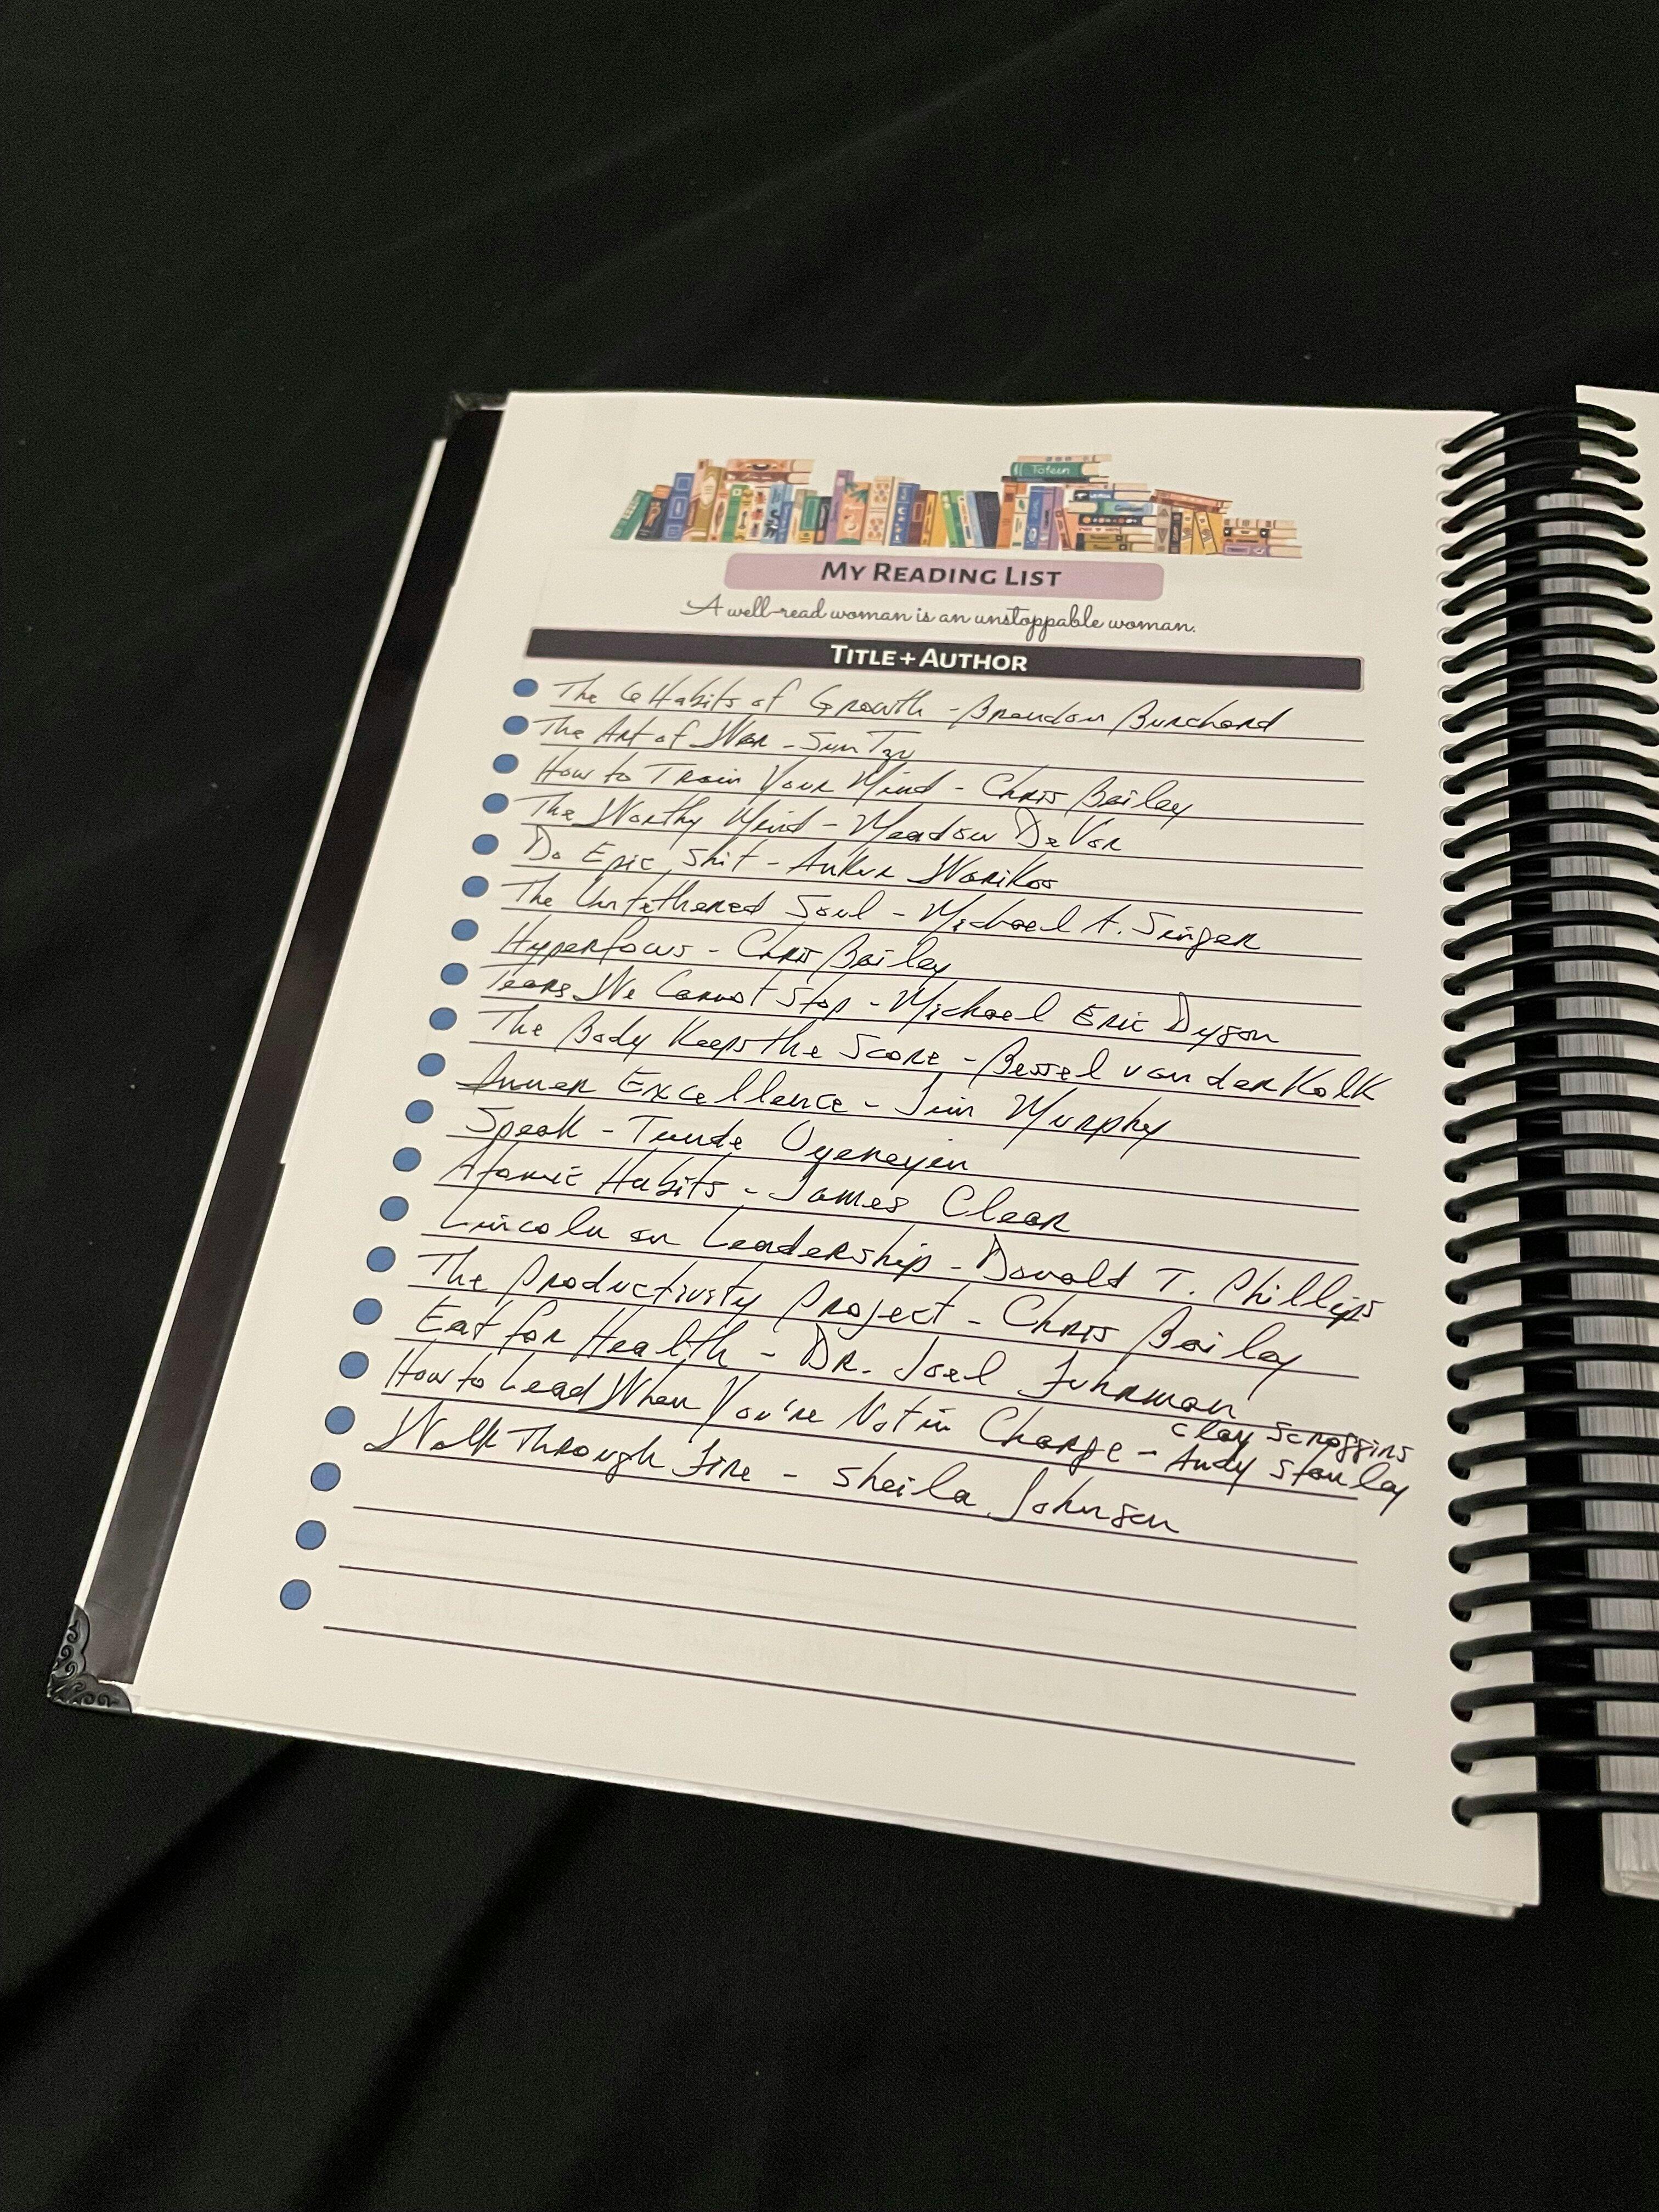 Totem
MY READING LIST
A well-read woman is an unstoppable woman.
TITLE + AUTHOR
The 6 Habits of Growth - Brendon Burchard
The Art of War - Sun Tzu
How to Train Your Mind - Chris Bailey
The Worthy Mind - Meadow DeVor
Do Epic Shit - Ankur Warikoo
The Untethered Soul - Michael A. Singer
Hyperfocus - Chris Bailey
Tears We Cannot Stop - Michael Eric Dyson
The Body Keeps the Score - Bessel van der Kolk
Inner Excellence - Jim Murphy
Speak - Tunde Oyeneyin
Atomic Habits - James Clear
Lincoln on Leadership - Donald T. Phillips
The Productivity Project - Chris Bailey
Eat for Health - Dr. Joel Fuhrman
Clay Scroggins
How to Lead When You're Not in Charge - Andy Stanley
Walk Through Fire - Sheila Johnson